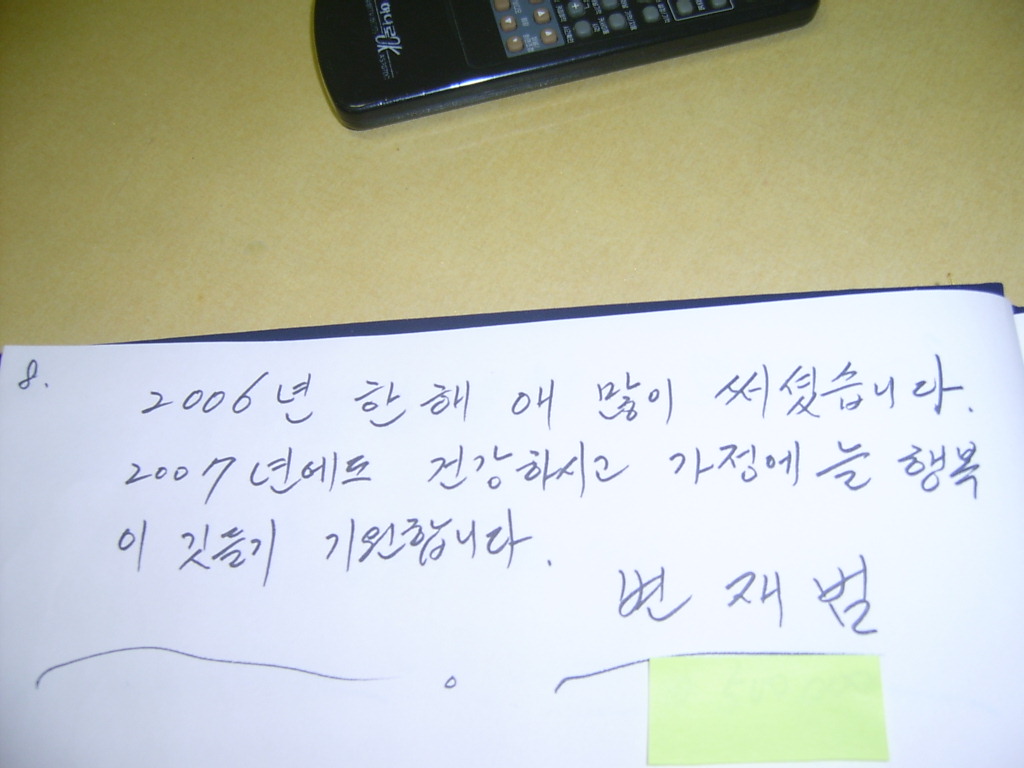 OK
8.
2006년 한해 애 많이 써셨습니다.
2007년에도 건강하시고 가정에 늘 행복
이 깃들기 기원합니다.
변재범